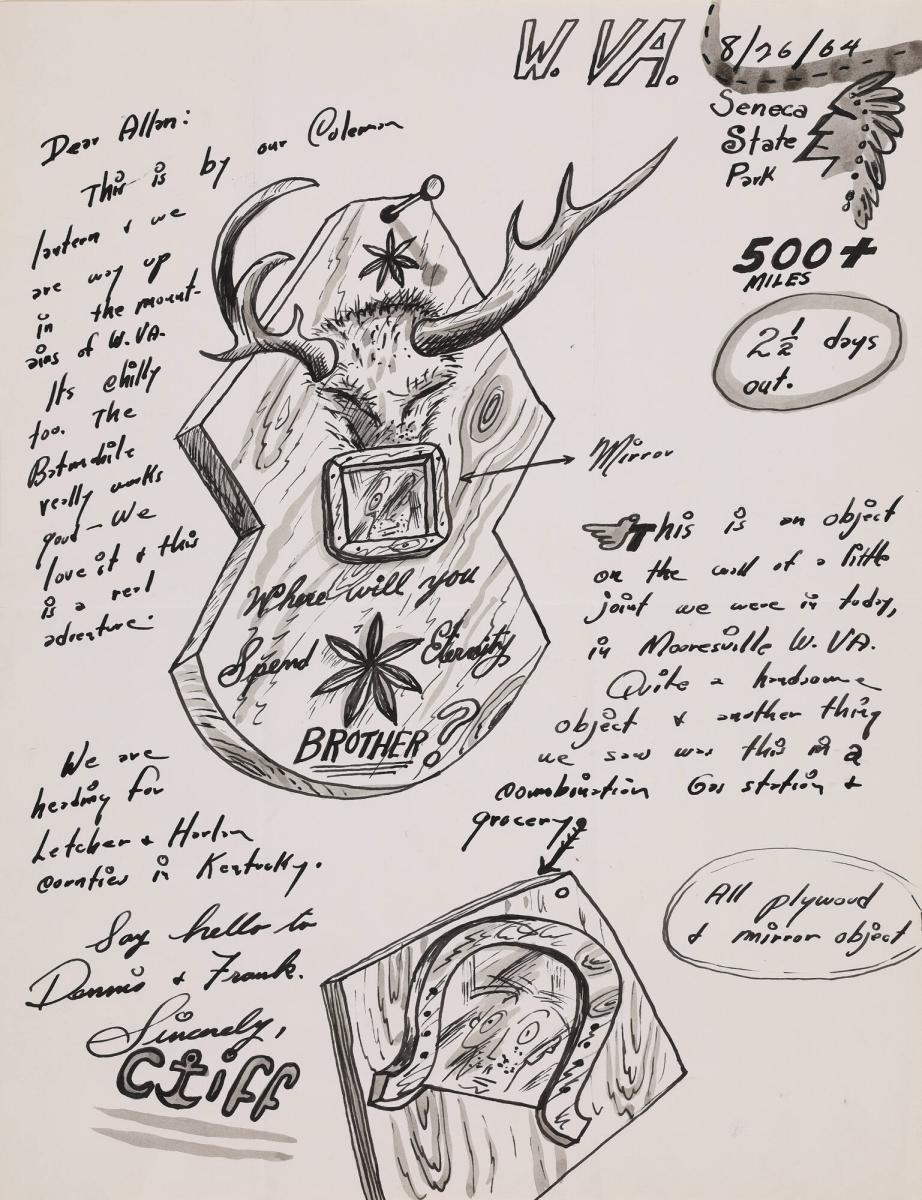 W. VA.
8/26/64
Seneca
State
Park
500+
MILES
2 1/2 days
out.
Dear Allan:
This is by our Coleman
lantern & we
are way up
in the mount-
ains of W. VA.
Its chilly
too. The
Batmobile
really works
good — We
love it & this
is a real
adventure.
Mirror
Where will you
Spend Eternity
BROTHER?
This is an object
on the wall of a little
joint we were in today,
in Mooresville W. VA.
Quite a handsome
object & another thing
we saw was this in a
combination Gas station &
grocery.
All plywood
& mirror object
We are
heading for
Letcher & Harlan
counties in Kentucky.
Say hello to
Dennis & Frank.
Sincerely,
Cliff